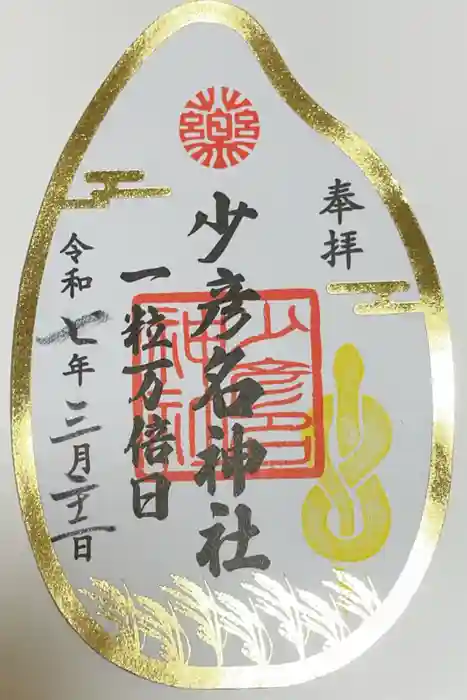 奉拝
薬
少彦名神社
少彦名
神社
一粒万倍日
令和七年三月二十二日